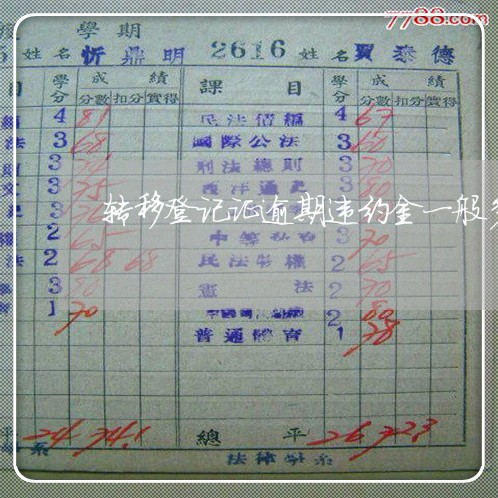 7788.com
學期
姓名 忻鼎明 2616 姓名 賈泰德
目 學分 成績 課目 學分 成績
分數 扣分 實得 分數 扣分 實得
4 81 民法債編 4 67
法 3 68 國際公法 3 60
3 刑法總則 3 70
3 75 西洋通史 3 80
转移登记证逾期违约金一般多
2 65 3 70
法 2 68 68 民法物權 2 65
3 80 憲法 2 70
1 70 2 80
普通體育 1 78
平 24 74.1 總平 26 72.3
系 法律學系